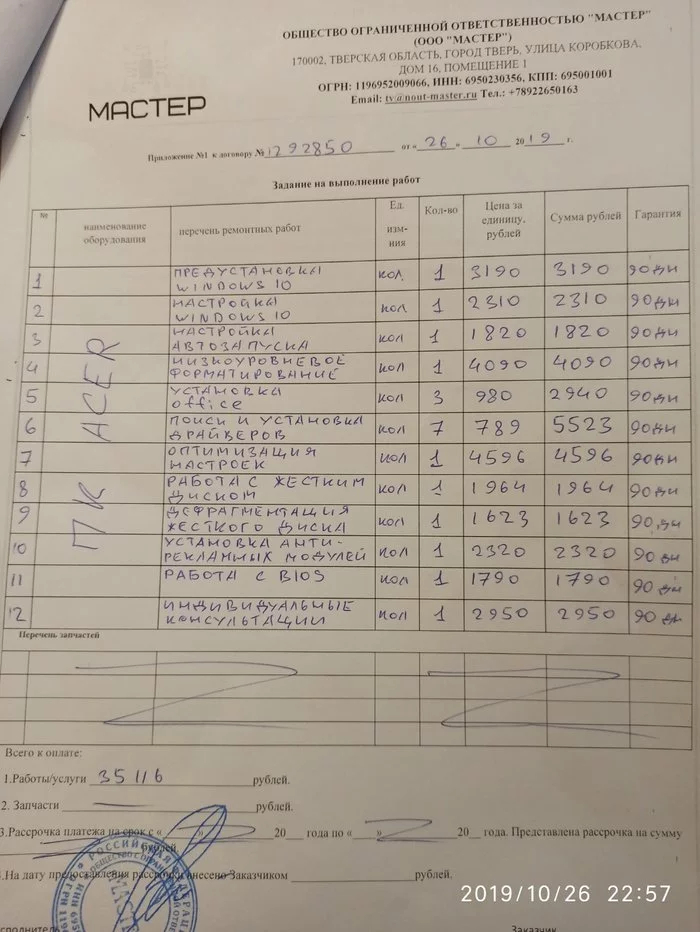 ОБЩЕСТВО ОГРАНИЧЕННОЙ ОТВЕТСТВЕННОСТЬЮ "МАСТЕР"
(ООО "МАСТЕР")
170002, ТВЕРСКАЯ ОБЛАСТЬ, ГОРОД ТВЕРЬ, УЛИЦА КОРОБКОВА,
ДОМ 16, ПОМЕЩЕНИЕ 1
ОГРН: 1196952009066, ИНН: 6950230356, КПП: 695001001
Email: tv@nout-master.ru Тел.: +78922650163
МАСТЕР
Приложение №1 к договору № 1292850 от «26» 10 2019 г.
Задание на выполнение работ
№ наименование оборудования перечень ремонтных работ Ед. изм-ния Кол-во Цена за единицу. рублей Сумма рублей Гарантия
ПК ACER
1 ПРЕДУСТАНОВКА WINDOWS 10 кол. 1 3190 3190 90дн
2 НАСТРОЙКА WINDOWS 10 кол 1 2310 2310 90дн
3 НАСТРОЙКА АВТОЗАПУСКА кол 1 1820 1820 90дн
4 НИЗКОУРОВНЕВОЕ ФОРМАТИРОВАНИЕ кол 1 4090 4090 90дн
5 УСТАНОВКА office кол 3 980 2940 90дн
6 ПОИСК И УСТАНОВКА ДРАЙВЕРОВ кол 7 789 5523 90дн
7 ОПТИМИЗАЦИЯ НАСТРОЕК кол 1 4596 4596 90дн
8 РАБОТА С ЖЕСТКИМ ДИСКОМ кол 1 1964 1964 90дн
9 ДЕФРАГМЕНТАЦИЯ ЖЕСТКОГО ДИСКА кол 1 1623 1623 90дн
10 УСТАНОВКА АНТИ-РЕКЛАМНЫХ МОДУЛЕЙ кол 1 2320 2320 90 дн
11 РАБОТА С BIOS кол 1 1790 1790 90 дн
12 ИНДИВИДУАЛЬНЫЕ КОНСУЛЬТАЦИИ кол 1 2950 2950 90 дн
Перечень запчастей
Всего к оплате:
1.Работы/услуги 35116 рублей.
2. Запчасти рублей.
3.Рассрочка платежа на срок с « » 20 года по « » 20 года. Представлена рассрочка на сумму
рублей.
На дату предоставления рассрочки внесено Заказчиком рублей.
Заказчик
2019/10/26 22:57